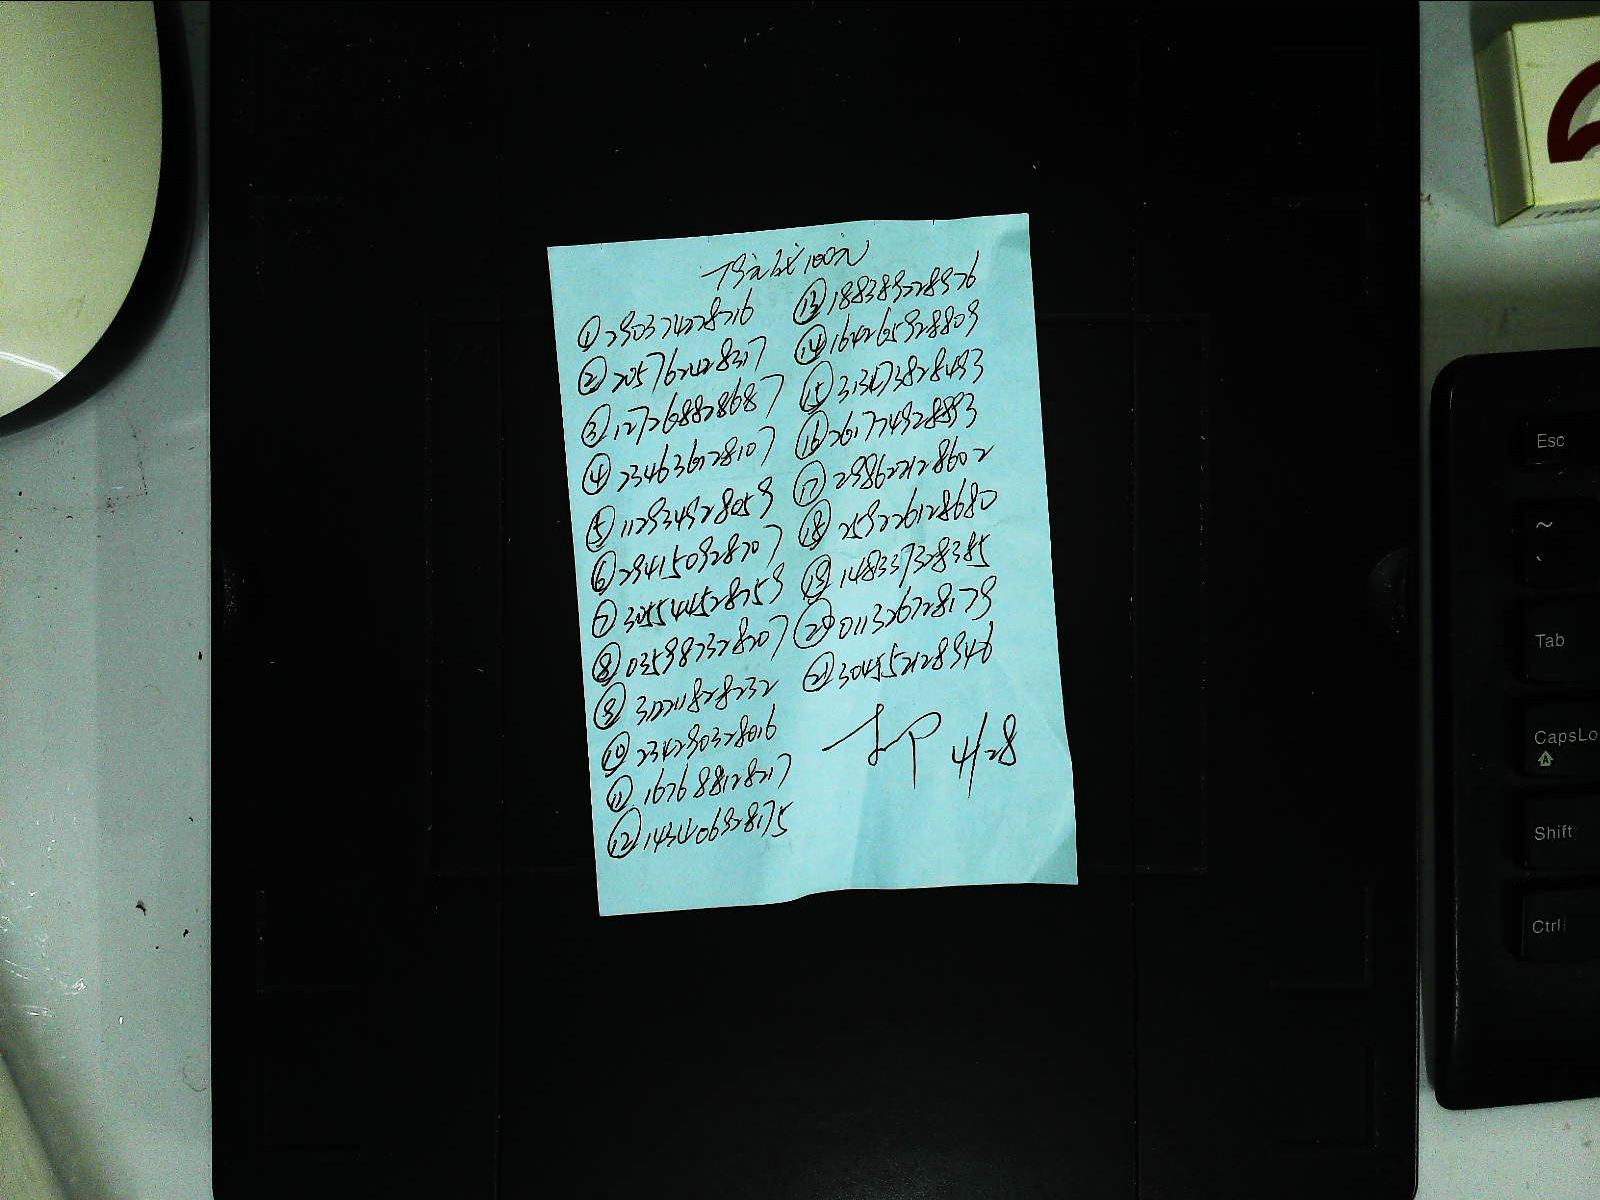 ① 290374228216
② 205762428317
③ 127268828687
④ 234636728107
⑤ 112934928059
⑥ 294150928207
⑦ 305544528259
⑧ 035987328207
⑨ 312211828232
⑩ 234290328016
⑪ 167688128217
⑫ 143406928175
⑬ 188389228976
⑭ 164265928809
⑮ 313473828493
⑯ 261774928893
⑰ 298622128602
⑱ 259226128680
⑲ 148337328385
⑳ 011326728179
㉑ 304552128946
4/28
Esc
~
`
Tab
CapsLo
Shift
Ctrl